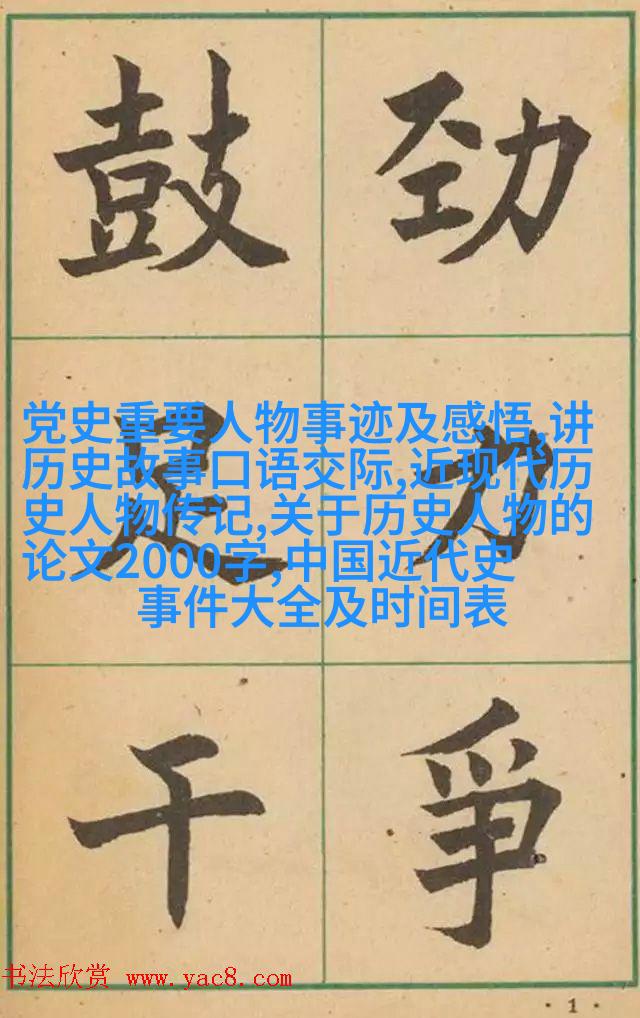 鼓足干
劲力爭
党史重要人物事迹及感悟,讲
历史故事口语交际,近现代历
史人物传记,关于历史人物的
论文2000字,中国近代史
事件大全及时间表
书法欣赏 www.yac8.com
·1·